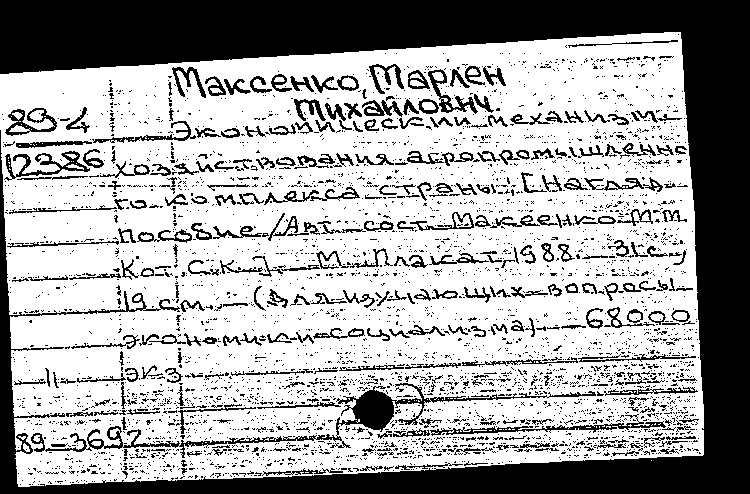 Максенко, Марлен
Михайлович.
89-4
12386
Экономический механизм
хозяйствования агропромышленно
го комплекса страны: [Нагляд.
пособие / Авт.-сост. Максенко М.М.
Кот С.К.]. - М. Плакат, 1988. - 31 с.,
19 см. - (Для изучающих вопросы
экономики социализма) 68000
11 экз
89-3692